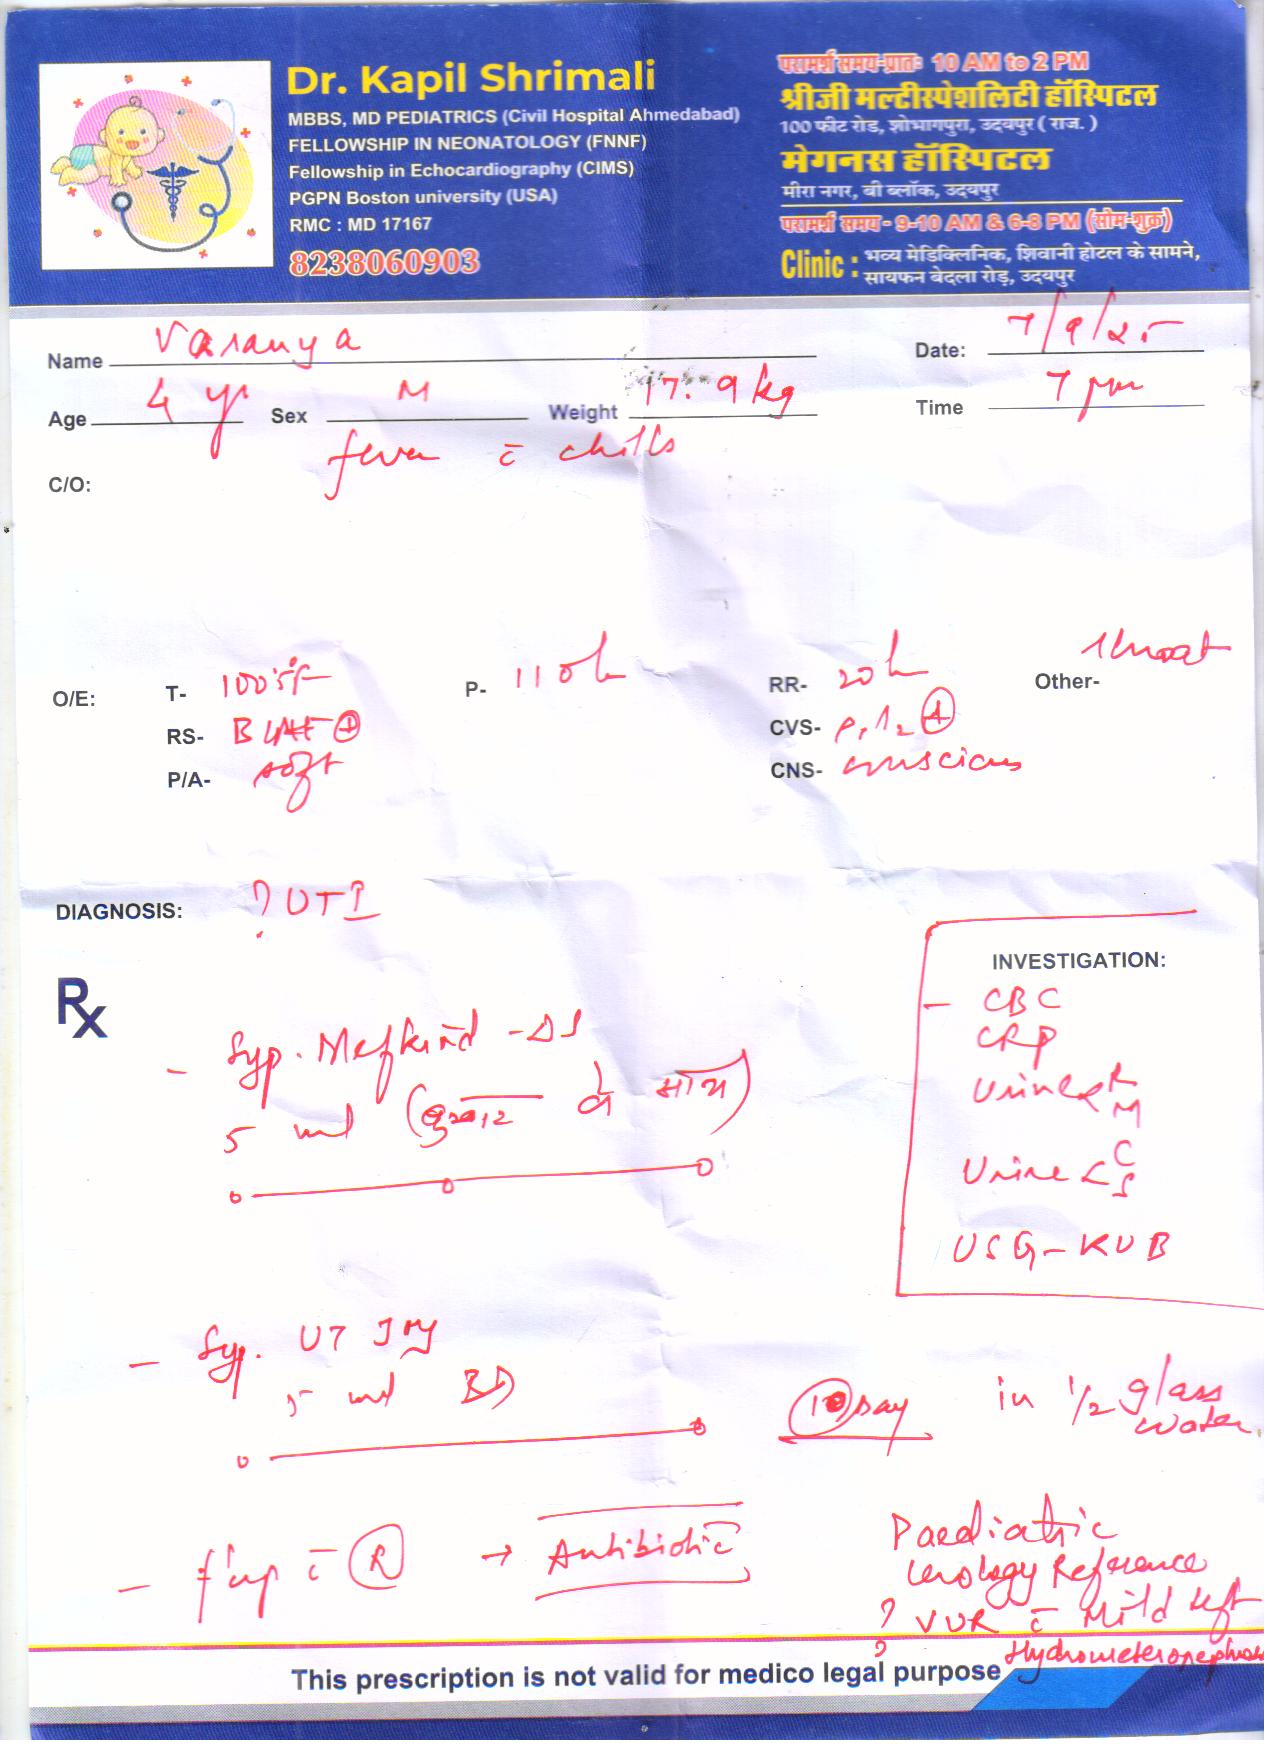 Dr. Kapil Shrimali
MBBS, MD PEDIATRICS (Civil Hospital Ahmedabad)
FELLOWSHIP IN NEONATOLOGY (FNNF)
Fellowship in Echocardiography (CIMS)
PGPN Boston university (USA)
RMC : MD 17167
8238060903
परामर्श समय-प्रातः 10 AM to 2 PM
श्रीजी मल्टीस्पेशलिटी हॉस्पिटल
100 फीट रोड, शोभागपुरा, उदयपुर ( राज. )
मेगनस हॉस्पिटल
मीरा नगर, बी ब्लॉक, उदयपुर
परामर्श समय - 9-10 AM & 6-8 PM (सोम-शुक्र)
Clinic : भव्य मेडिक्लिनिक, शिवानी होटल के सामने,
सायफन बेदला रोड़, उदयपुर
Name Varanya Date: 7/9/25
Age 4 yr Sex M Weight 17.9 kg Time 7 pm
C/O: fever c̄ chills
O/E: T- 100.5°F P- 110/ RR- 20/ Other- throat
RS- BLAE ⊕ CVS- S1S2 ⊕
P/A- soft CNS- conscious
DIAGNOSIS: ? UTI
Rx
INVESTIGATION:
- CBC
CRP
Urine < R M
Urine < C S
USG - KUB
- Syp. Mefkind - DS
5 ml (बुखार के साथ)
- Syp. UT
5 ml BD 10 Day in 1/2 glass water
- f'up c̄ R → Antibiotic
Paediatric
Urology Reference
? VUR c̄ Mild left
? Hydroureteronephro
This prescription is not valid for medico legal purpose